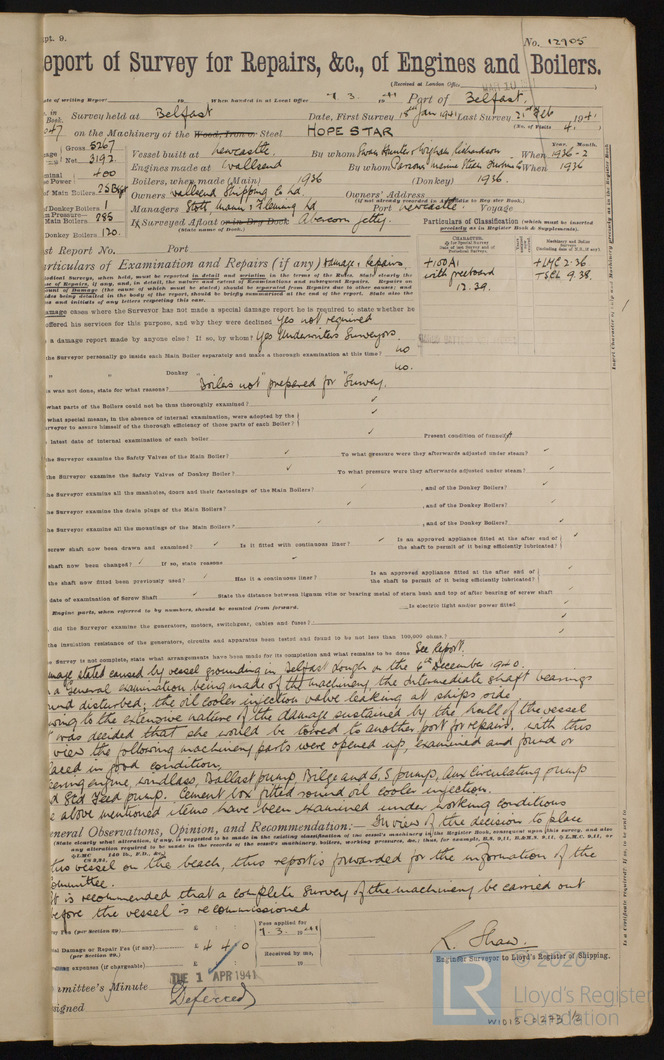 pt. 9.
No. 12905
eport of Survey for Repairs, &c., of Engines and Boilers.
(Received at London Office
ate of writing Report 19 When handed in at Local Office 7. 3. 1941 Port of Belfast.
Survey held at Belfast Date, First Survey 18th Jan 1941 Last Survey 21st Feb 1941
Book.
(No. of Visits 4.)
on the Machinery of the Wood, Iron or Steel HOPE STAR
Gross 5267
Net 3192
Vessel built at Newcastle. By whom Swan Hunter & Wigham Richardson When 1936-2
Year. Month.
Engines made at Wallsend By whom Parsons Marine Steam Turbine When 1936
Boilers, when made (Main) 1936 (Donkey) 1936.
Owners Wallsend Shipping Co Ld. Owners' Address
(if not already recorded in Appendix to Register Book.)
Managers Stott, Mann & Fleming Ld Port Newcastle. Voyage
If Surveyed Afloat or in Dry Dock Abercorn Jetty.
(State name of Dock.)
of Main Boilers 2SB
of Donkey Boilers 1
Main Boilers 285
Donkey Boilers 120.
Particulars of Classification (which must be inserted
precisely as in Register Book & Supplements).
st Report No. Port
articulars of Examination and Repairs (if any) Damage, Repairs
+100A1
with freeboard
12.39.
+LMC 2.36
TSCL 9.38.
amage cases where the Surveyor has not made a special damage report he is required to state whether he
offered his services for this purpose, and why they were declined Yes not required
a damage report made by anyone else? If so, by whom? Yes Underwriters Surveyors.
the Surveyor personally go inside each Main Boiler separately and make a thorough examination at this time? no
" " Donkey " " " no.
was not done, state for what reasons? Boilers not prepared for Survey.
what parts of the Boilers could not be thus thoroughly examined? ✓
what special means, in the absence of internal examination, were adopted by the
rveyor to assure himself of the thorough efficiency of those parts of each Boiler? ✓
latest date of internal examination of each boiler Present condition of funnel
he Surveyor examine the Safety Valves of the Main Boiler? ✓ To what pressure were they afterwards adjusted under steam? ✓
he Surveyor examine the Safety Valves of Donkey Boiler? ✓ To what pressure were they afterwards adjusted under steam? ✓
he Surveyor examine all the manholes, doors and their fastenings of the Main Boilers? ✓, and of the Donkey Boilers? ✓
he Surveyor examine the drain plugs of the Main Boilers? ✓, and of the Donkey Boilers? ✓
he Surveyor examine all the mountings of the Main Boilers? ✓, and of the Donkey Boilers? ✓
screw shaft now been drawn and examined? ✓ Is it fitted with continuous liner? ✓ Is an approved appliance fitted at the after end of
the shaft to permit of it being efficiently lubricated? ✓
shaft now been changed? ✓ If so, state reasons ✓
the shaft now fitted been previously used? ✓ Has it a continuous liner? Is an approved appliance fitted at the after end of
the shaft to permit of it being efficiently lubricated? ✓
date of examination of Screw Shaft ✓ State the distance between lignum vitæ or bearing metal of stern bush and top of after bearing of screw shaft ✓
Engine parts, when referred to by numbers, should be counted from forward. Is electric light and/or power fitted ✓
did the Surveyor examine the generators, motors, switchgear, cables and fuses? ✓
the insulation resistance of the generators, circuits and apparatus been tested and found to be not less than 100,000 ohms? ✓
he Survey is not complete, state what arrangements have been made for its completion and what remains to be done See Report.
mage stated caused by vessel grounding in Belfast Lough on the 6th December 1940.
a general examination being made of the machinery the intermediate shaft bearings
und disturbed; the oil cooler injection valve leaking at ships side
wing to the extensive nature of the damage sustained by the hull of the vessel
was decided that she would be towed to another port for repairs. with this
view the following machinery parts were opened up, examined and found or
laced in good condition.
eering engine, windlass, Ballast pump, Bilge and G.S pumps, Aux circulating pump
d Std Feed pump. Cement box fitted round oil cooler injection.
e above mentioned items have been examined under working conditions
eneral Observations, Opinion, and Recommendation:— In view of the decision to place
this vessel on the beach, this report is forwarded for the information of the
ommittee.
It is recommended that a complete survey of the machinery be carried out
before the vessel is recommissioned
vey Fee (per Section 29) £ : :
Fees applied for
7. 3. 1941
ial Damage or Repair Fee (if any) £ 4 4 0
(per Section 29.)
Received by me,
elling expenses (if chargeable) £ : : 19
L. Shaw.
Engineer Surveyor to Lloyd's Register of Shipping.
mmittee's Minute TUE 1 APR 1941
signed Deferred
© 2020
LR
Lloyd's Register
Foundation
W1013-0273 1/2